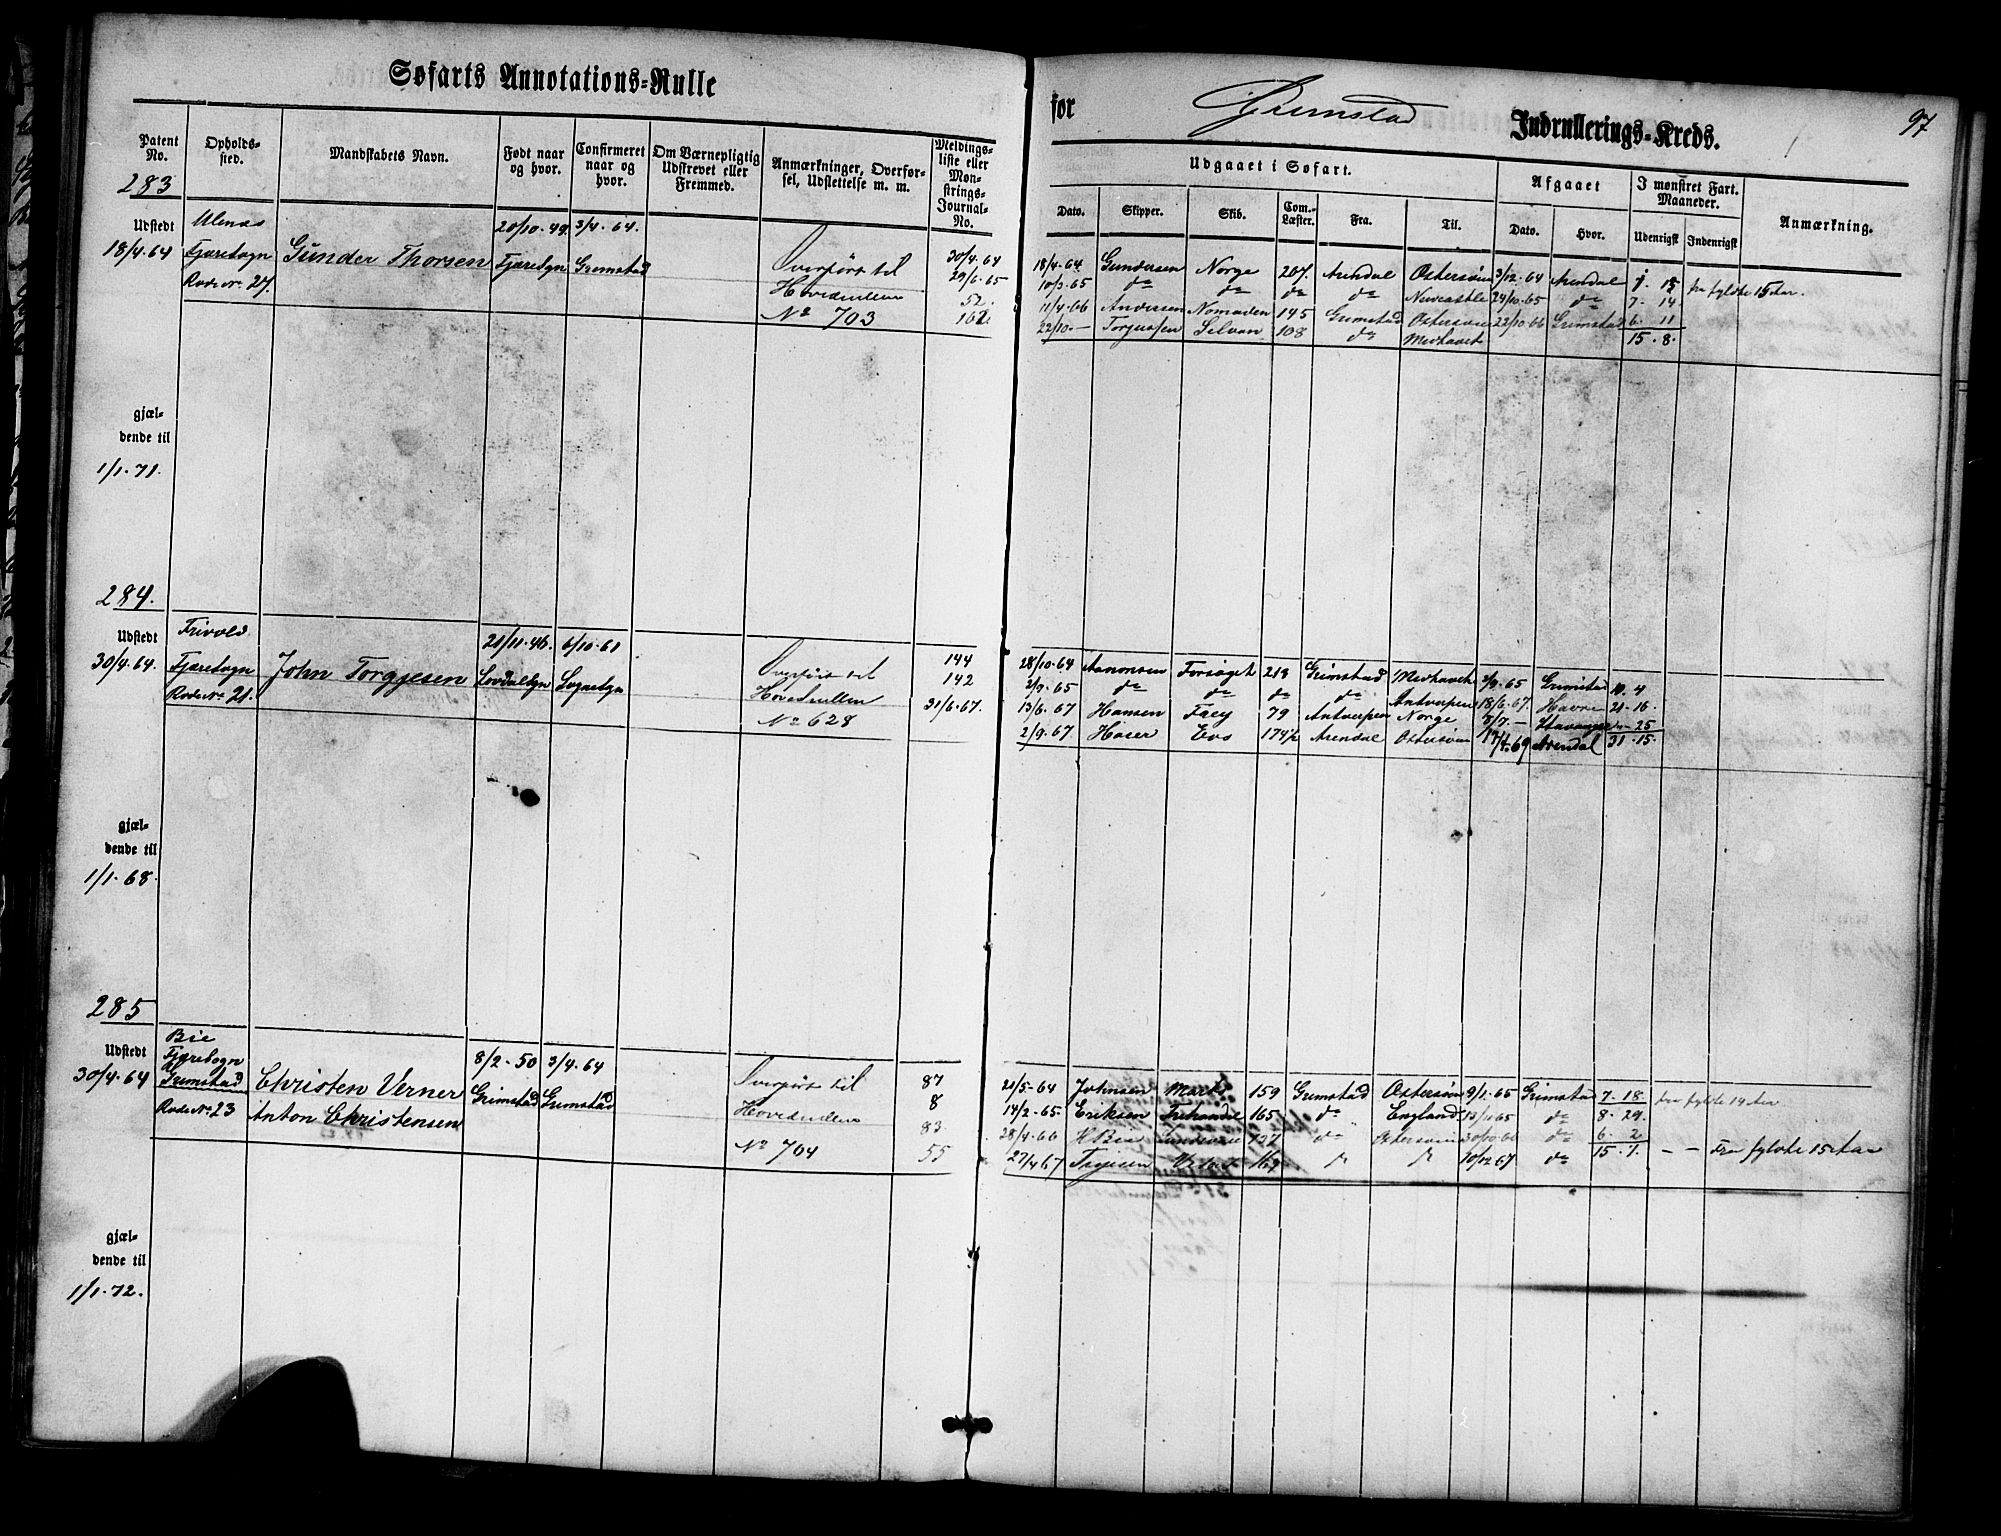 Søfarts Annotations-Rulle
for Grimstad Indrullerings-Kreds.
97
Patent No.
Opholds-sted.
Mandskabets Navn.
Født naar og hvor.
Confirmeret naar og hvor.
Om Værnepligtig Udskrevet eller Fremmed.
Anmærkninger, Overførsel, Udslettelse m. m.
Meldings-liste eller Mønstrings-Journal-No.
Udgaaet i Søfart.
Dato.
Skipper.
Skib.
Com.-Læster.
Fra.
Til.
Afgaaet
Dato.
Hvor.
I mønstret Fart. Maaneder.
Udenrigsk
Indenrigsk
Anmærkning.
283
Udstedt
18/4.64
Fjæresogn
Rode No. 27.
Gunder Thorsen
20/10.49.
Fjæresgn
3/4.64.
Grimstad
Overført til
Hovedrullen
No 703
30/4.64
29/6.65
52.
18/4.64 Gundersen Norge 207 Arendal Østersøen 3/12.64 Arendal fra fyldte 15 Aar.
10/3.65 do do do do Newcastle 24/10.65 do 7. 14
11/4.66 Andersen Nomaden 145 Grimstad Østersøen 22/10.66 Grimstad 6. 11
22/10.— Silvan 108 do Middhavet 15. 8.
gjæl-
dende til
1/1.71.
284.
Udstedt
30/4.64.
Frivold
Fjæresogn
Rode No 21.
John Torgjesen
21/11.46.
6/10.61
Sognesgn
Overført til
Hovedrullen
No 628
144
142
31/6.67.
28/10.64 Aanonsen Forsøget 218 Grimstad Midhavet 3/9.65 Grimstad 10. 4
2/9.65 do do do do Antverpen 18/6.67. Havre 21. 16.
13/6.67 Hansen 79 Antverpen Norge 5/7.— Stavanger 25
2/9.67 Evs 174½ Arendal Østersøen Arendal 31. 15.
gjæl-
dende til
1/1.68.
285
Udstedt
30/4.64
Bie
Fjæresogn
Grimstad
Rode No. 23
Christen Verner
Anton Christensen
8/2.50
Grimstad
3/4.64
Grimstad
Overført til
Hovedrullen
No 704
87
8
83
55
21/5.64 Johnsen 159 Grimstad Østersøen 9/1.65 Grimstad 7. 18. fra fyldte 14 Aar
14/2.65 Eriksen 165 do England do 8. 29.
28/4.66 H Bie do Østersøen 30/10.66 do 6. 2
27/4.67 10/12.67 do 15. 1. — — Fra fyldte 15 Aar
gjæl-
dende til
1/1.72.